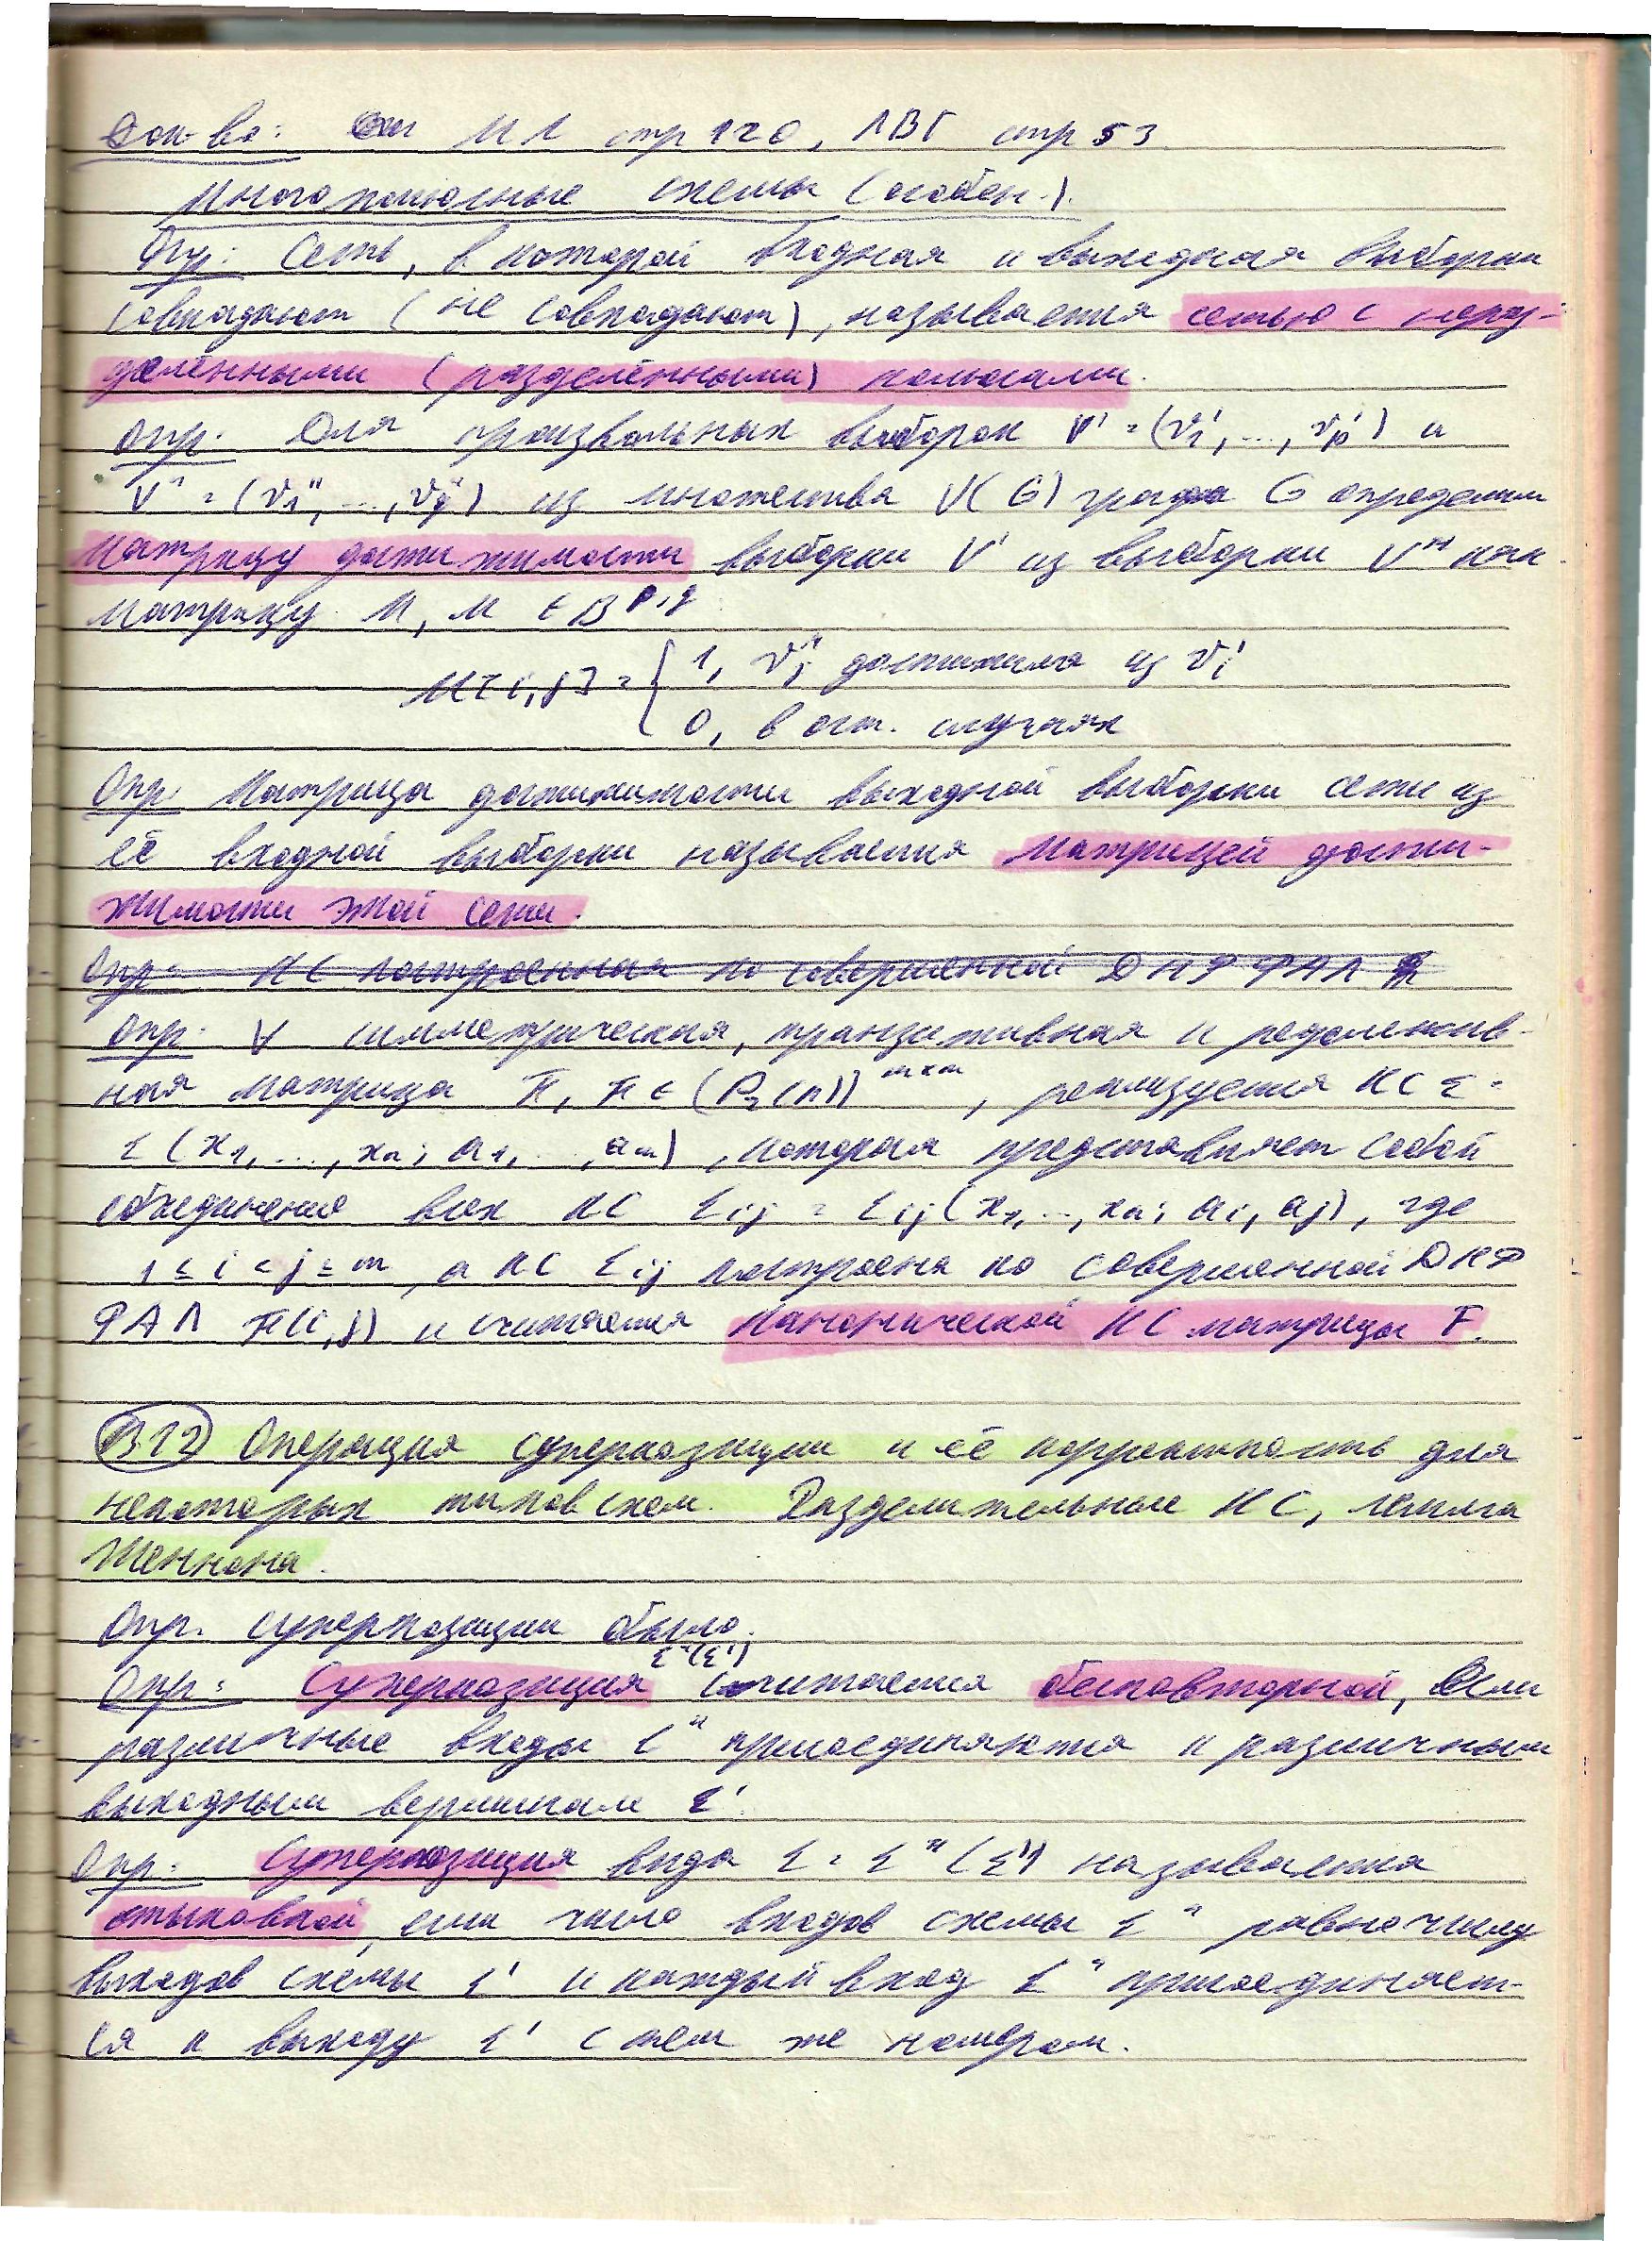 Док-во: см МЛ стр 120, ЛВГ стр 53
Многополюсные схемы (особен.).
Опр: Сеть, в которой входная и выходная выборки
совпадают (не совпадают), называется сетью с нераз-
делёнными (разделёнными) полюсами.
Опр: Для произвольных выборок V' = (v₁', ..., vₚ') и
V" = (v₁", ..., v_q") из множества V(G) графа G определим
матрицу достижимости выборки V' из выборки V" как
матрицу M, M ∈ B^{p,q}
M[i,j] = { 1, v_j" достижима из v_i'
0, в ост. случаях
Опр: Матрица достижимости выходной выборки сети из
её входной выборки называется матрицей дости-
жимости этой сети.
Опр: КС построенная по совершенной ДНФ ФАЛ
Опр: ∀ симметрическая, транзитивная и рефлексив-
ная матрица F, F ∈ (P₂(n))^{m×m}, реализуется КС Σ =
Σ(x₁, ..., xₙ; a₁, ..., aₘ), которая представляет собой
объединение всех КС Σij = Σij(x₁, ..., xₙ; ai, aj), где
1 ≤ i < j ≤ m, а КС Σij построена по совершенной ДНФ
ФАЛ F(i,j) и считается канонической КС матрицы F.
В12 Операция суперпозиции и её корректность для
некоторых типов схем. Разделительные КС, лемма
Шеннона.
Опр. суперпозиции было.
Σ"(Σ')
Опр: Суперпозиция считается бесповторной, если
различные входы Σ" присоединяются к различным
выходным вершинам Σ'.
Опр: Суперпозиция вида Σ = Σ"(Σ') называется
стыковкой, если число входов схемы Σ" равно числу
выходов схемы Σ' и каждый вход Σ" присоединяет-
ся к выходу Σ' с тем же номером.